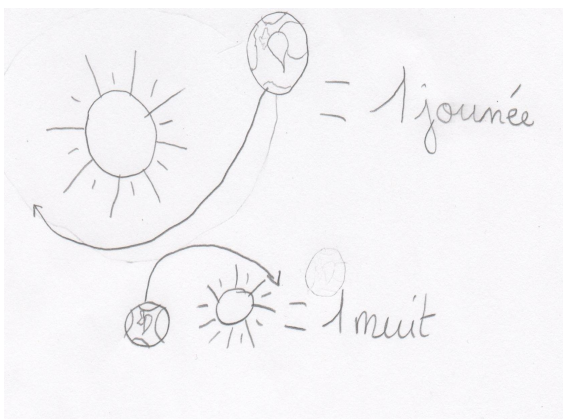 = 1 jounée
= 1 nuit